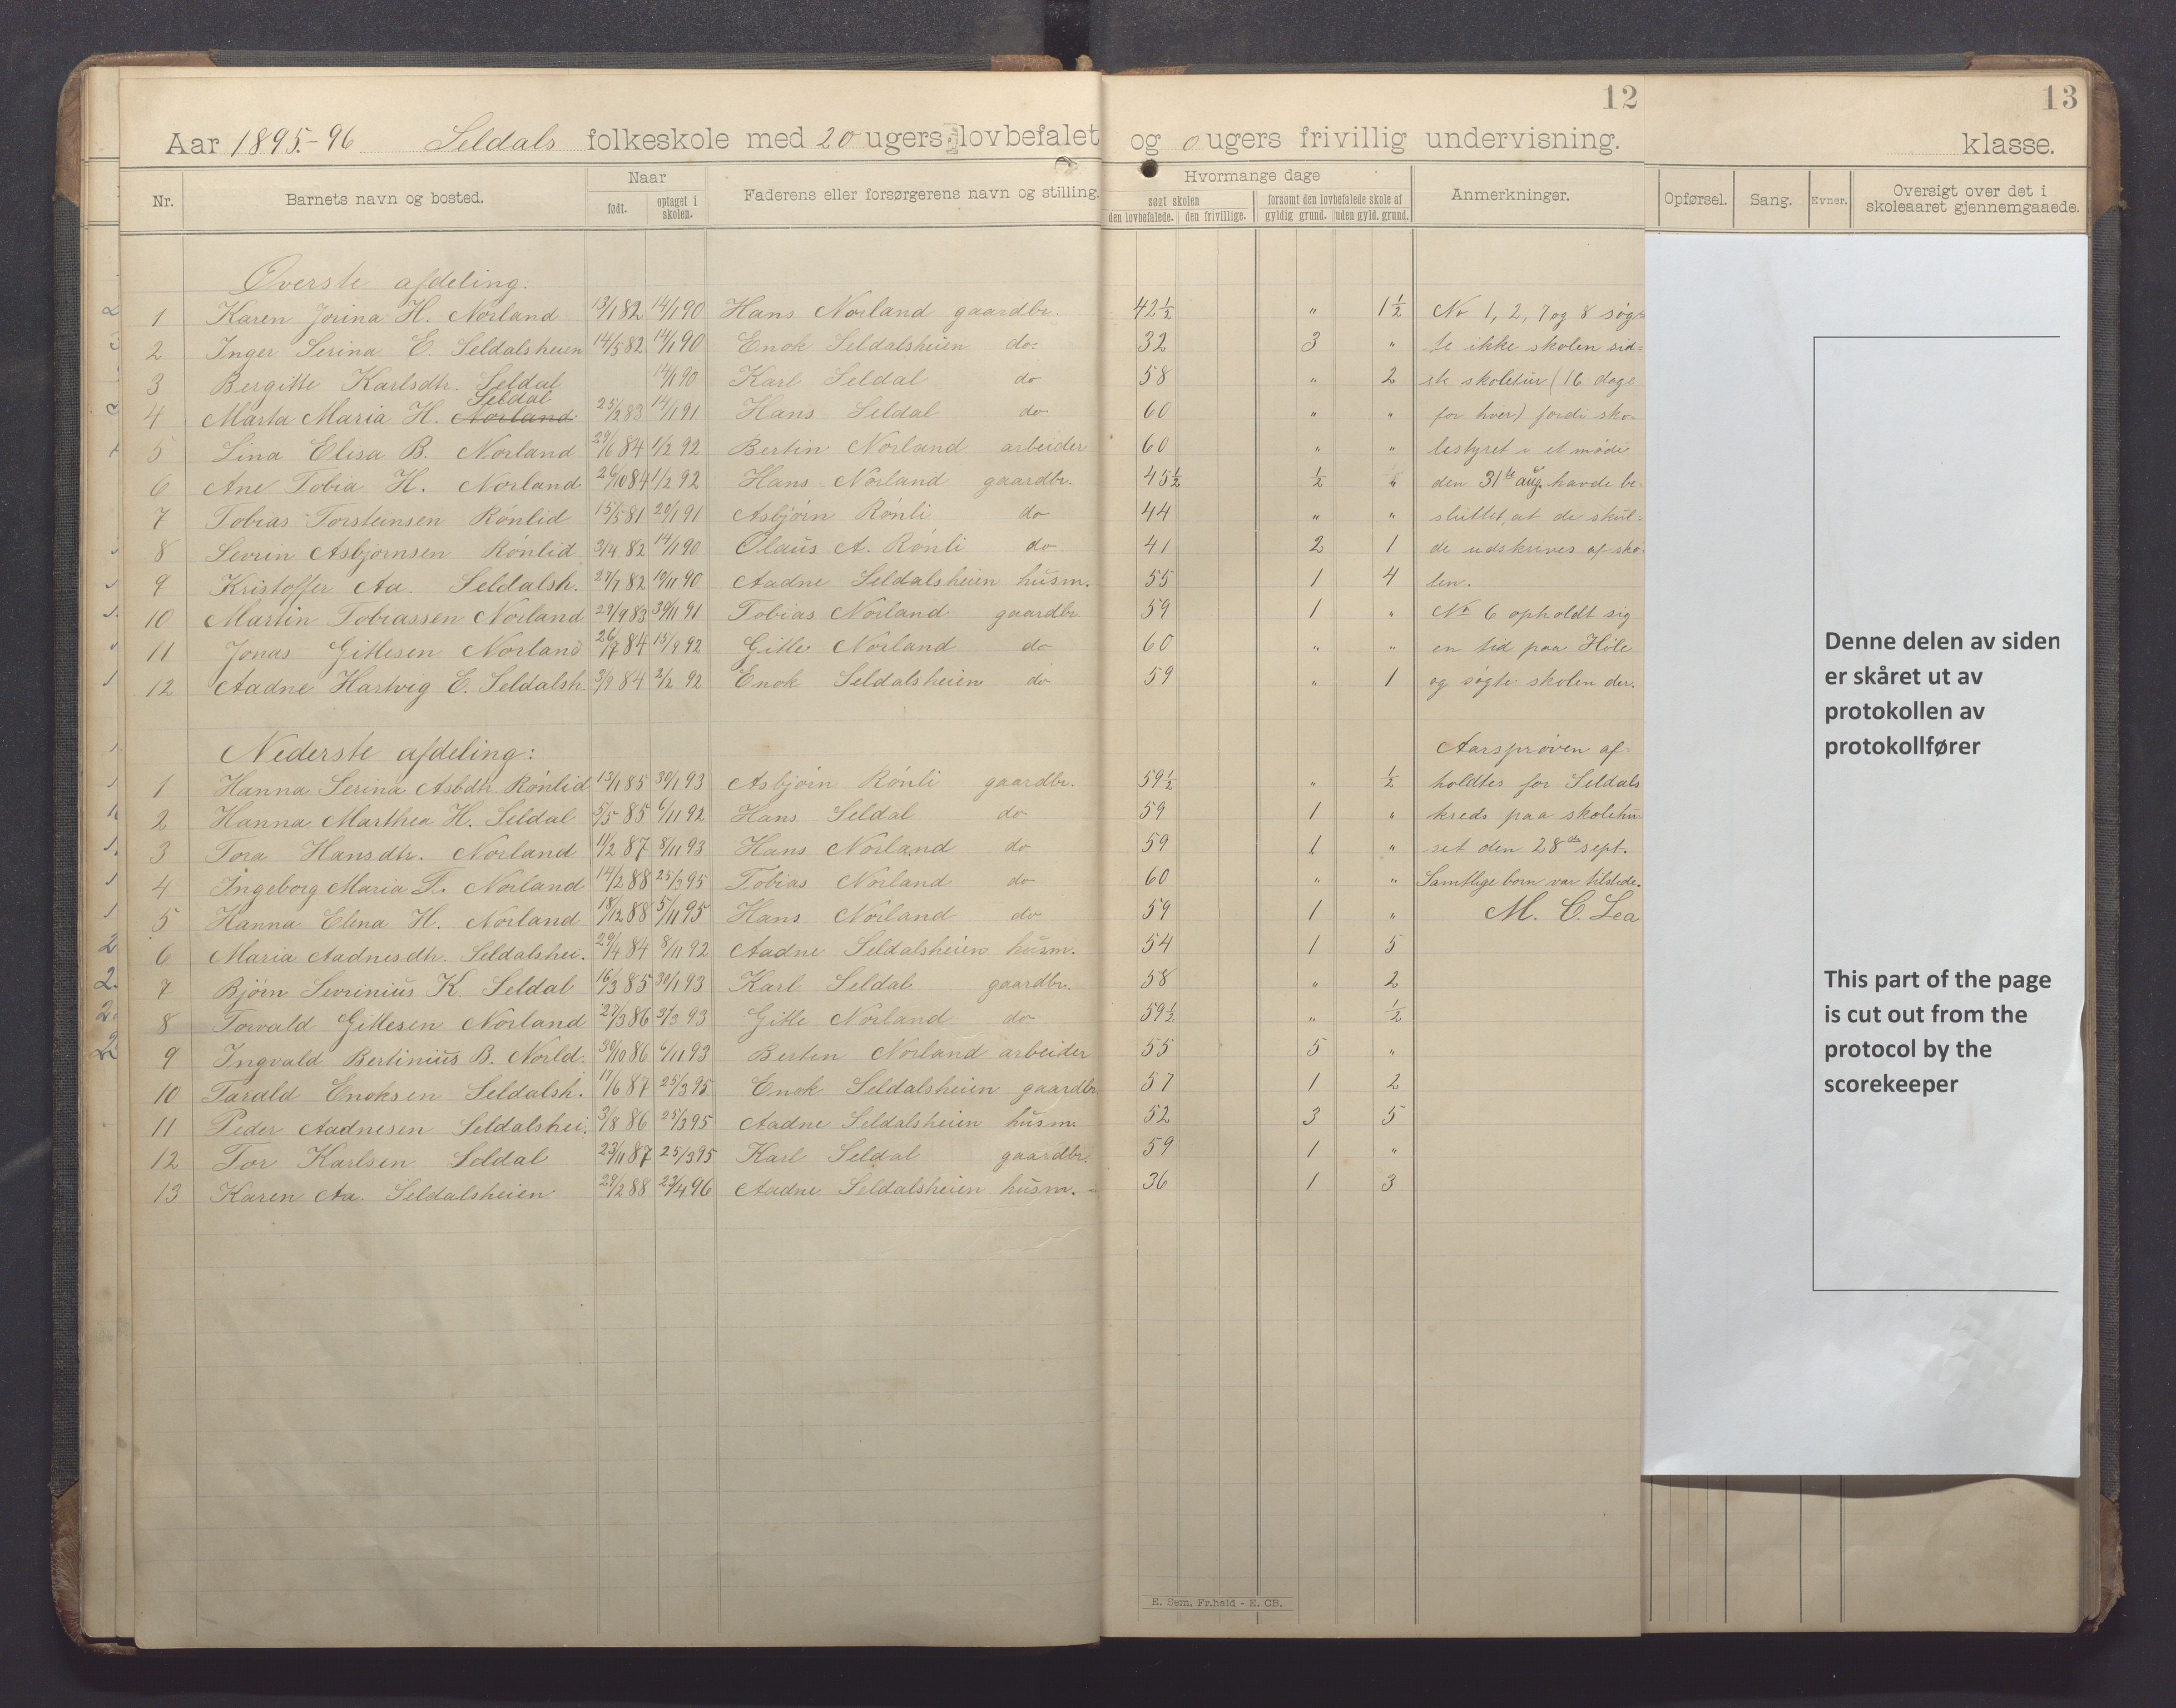 12
13
Aar 1895.-96 Seldals folkeskole med 20 ugers lovbefalet og 0 ugers frivillig undervisning. klasse.
Nr. Barnets navn og bosted. Naar født. optaget i skolen. Faderens eller forsørgerens navn og stilling. Hvormange dage søgt skolen den lovbefalede. den frivillige. forsømt den lovbefalede skole af gyldig grund. uden gyld. grund. Anmerkninger. Opførsel. Sang. Evner. Oversigt over det i skoleaaret gjennemgaaede.
Øverste afdeling:
1 Karen Jorina H. Norland 13/1 82 14/1 90 Hans Norland gaardbr. 42½ " 1½ No 1, 2, 7 og 8 søg-
2 Inger Serina E. Seldalsheien 14/5 82 14/1 90 Enok Seldalsheien do. 32 3 " te ikke skolen sid-
3 Bergitte Karlsdtr. Seldal 14/1 90 Karl Seldal do 58 " 2 ste skoletur (16 dage
Seldal
4 Marta Maria H. Norland 25/2 83 14/1 91 Hans Seldal do 60 " " for hver) fordi sko-
5 Lina Elisa B. Norland 29/6 84 1/2 92 Bertin Norland arbeider 60 " " lestyret i et møde
6 Ane Tobia H. Norland 26/10 84 1/2 92 Hans Norland gaardbr. 45½ ½ " den 31te aug. havde be-
7 Tobias Torsteinsen Rönlid 15/5 81 20/1 91 Asbjörn Rönli do 44 " " sluttet, at de skul-
8 Sevrin Asbjörnsen Rönlid 3/4 82 14/1 90 Olaus A. Rönli do 41 2 1 de udskrives af sko-
9 Kristoffer Aa. Seldalsh. 27/7 82 10/11 90 Aadne Seldalsheien husm. 55 1 4 len.
10 Martin Tobiassen Norland 29/9 83 30/11 91 Tobias Norland gaardbr. 59 1 " No 6 opholdt sig
11 Jonas Gitlesen Norland 26/7 84 15/9 92 Gitle Norland do 60 " " en tid paa Höle
12 Aadne Hartvig E. Seldalsh. 3/9 84 2/2 92 Enok Seldalsheien do 59 " 1 og søgte skolen der.
Nederste afdeling: Aarsprøven af-
1 Hanna Serina Asbdtr. Rönlid 13/1 85 30/1 93 Asbjörn Rönli gaardbr. 59½ " ½ holdtes for Seldals
2 Hanna Marthea H. Seldal 5/5 85 6/11 92 Hans Seldal do 59 1 " kreds paa skolehu-
3 Tora Hansdtr. Norland 11/2 87 8/11 93 Hans Norland do 59 1 " set den 28de sept.
4 Ingeborg Maria T. Norland 14/2 88 25/3 95 Tobias Norland do 60 " " Samtlige børn var tilstede.
5 Hanna Elena H. Norland 18/12 88 5/11 95 Hans Norland do 59 1 " M. C. Lea
6 Maria Aadnesdtr. Seldalshei. 29/4 84 8/11 92 Aadne Seldalsheien husm. 54 1 5
7 Björn Sevrinius K. Seldal 16/3 85 30/1 93 Karl Seldal gaardbr. 58 " 2
8 Torvald Gitlesen Norland 27/3 86 3/3 93 Gitle Norland do 59½ " ½
9 Ingvald Bertinius B. Norld. 30/10 86 6/11 93 Bertin Norland arbeider 55 5 "
10 Tarald Enoksen Seldalsh. 17/6 87 25/3 95 Enok Seldalsheien gaardbr 57 1 2
11 Peder Aadnesen Seldalshei. 3/8 86 25/3 95 Aadne Seldalsheien husm 52 3 5
12 Tor Karlsen Seldal 23/11 87 25/3 95 Karl Seldal gaardbr. 59 1 "
13 Karen Aa. Seldalsheien 29/2 88 23/4 96 Aadne Seldalsheien husm. 36 1 3
Denne delen av siden
er skåret ut av
protokollen av
protokollfører
This part of the page
is cut out from the
protocol by the
scorekeeper
E. Sem. Fr.hald - E. CB.